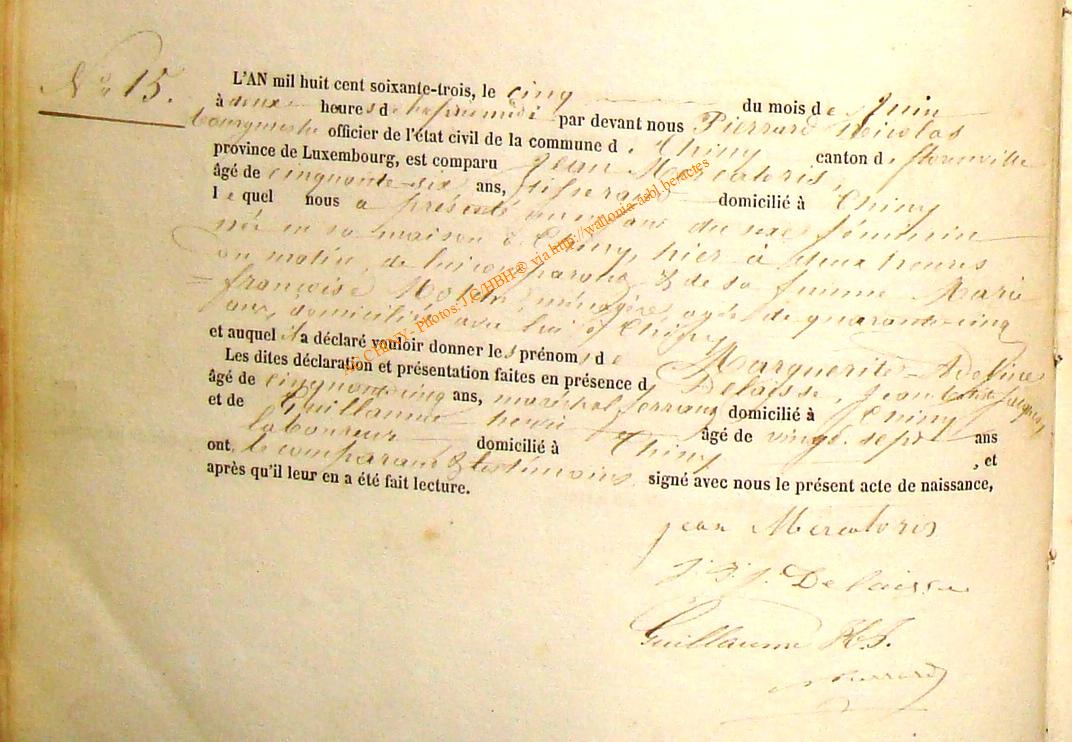 N° 15.
L'AN mil huit cent soixante-trois, le cinq du mois de Juin
à deux heures de par devant nous Pierrard Nicolas
bourgmestre officier de l'état civil de la commune de Chiny canton de florenville
province de Luxembourg, est comparu Jean Mercatoris,
âgé de cinquante-six ans, domicilié à Chiny
lequel nous a présenté un du sexe féminin
née en sa maison à Chiny, hier à deux heures
du matin, de lui comparant & de sa femme Marie
françoise ménagère, agée de quarante-cinq
ans, domiciliée avec lui à Chiny
et auquel il a déclaré vouloir donner les prénoms de Marguerite-Adeline
Les dites déclaration et présentation faites en présence d Delaisse, Jean
âgé de cinquante cinq ans, maréchal ferrant domicilié à Chiny
et de Guillaume henri âgé de vingt-sept ans
laboureur domicilié à Chiny, et
ont, le comparant & les témoins, signé avec nous le présent acte de naissance,
après qu'il leur en a été fait lecture.
jean Mercatoris
J. B. J. Delaisse
Guillaume H. J.
Pierrard
CHINY - Photos: J.C/HBH® via http://wallonia-asbl.be/actes